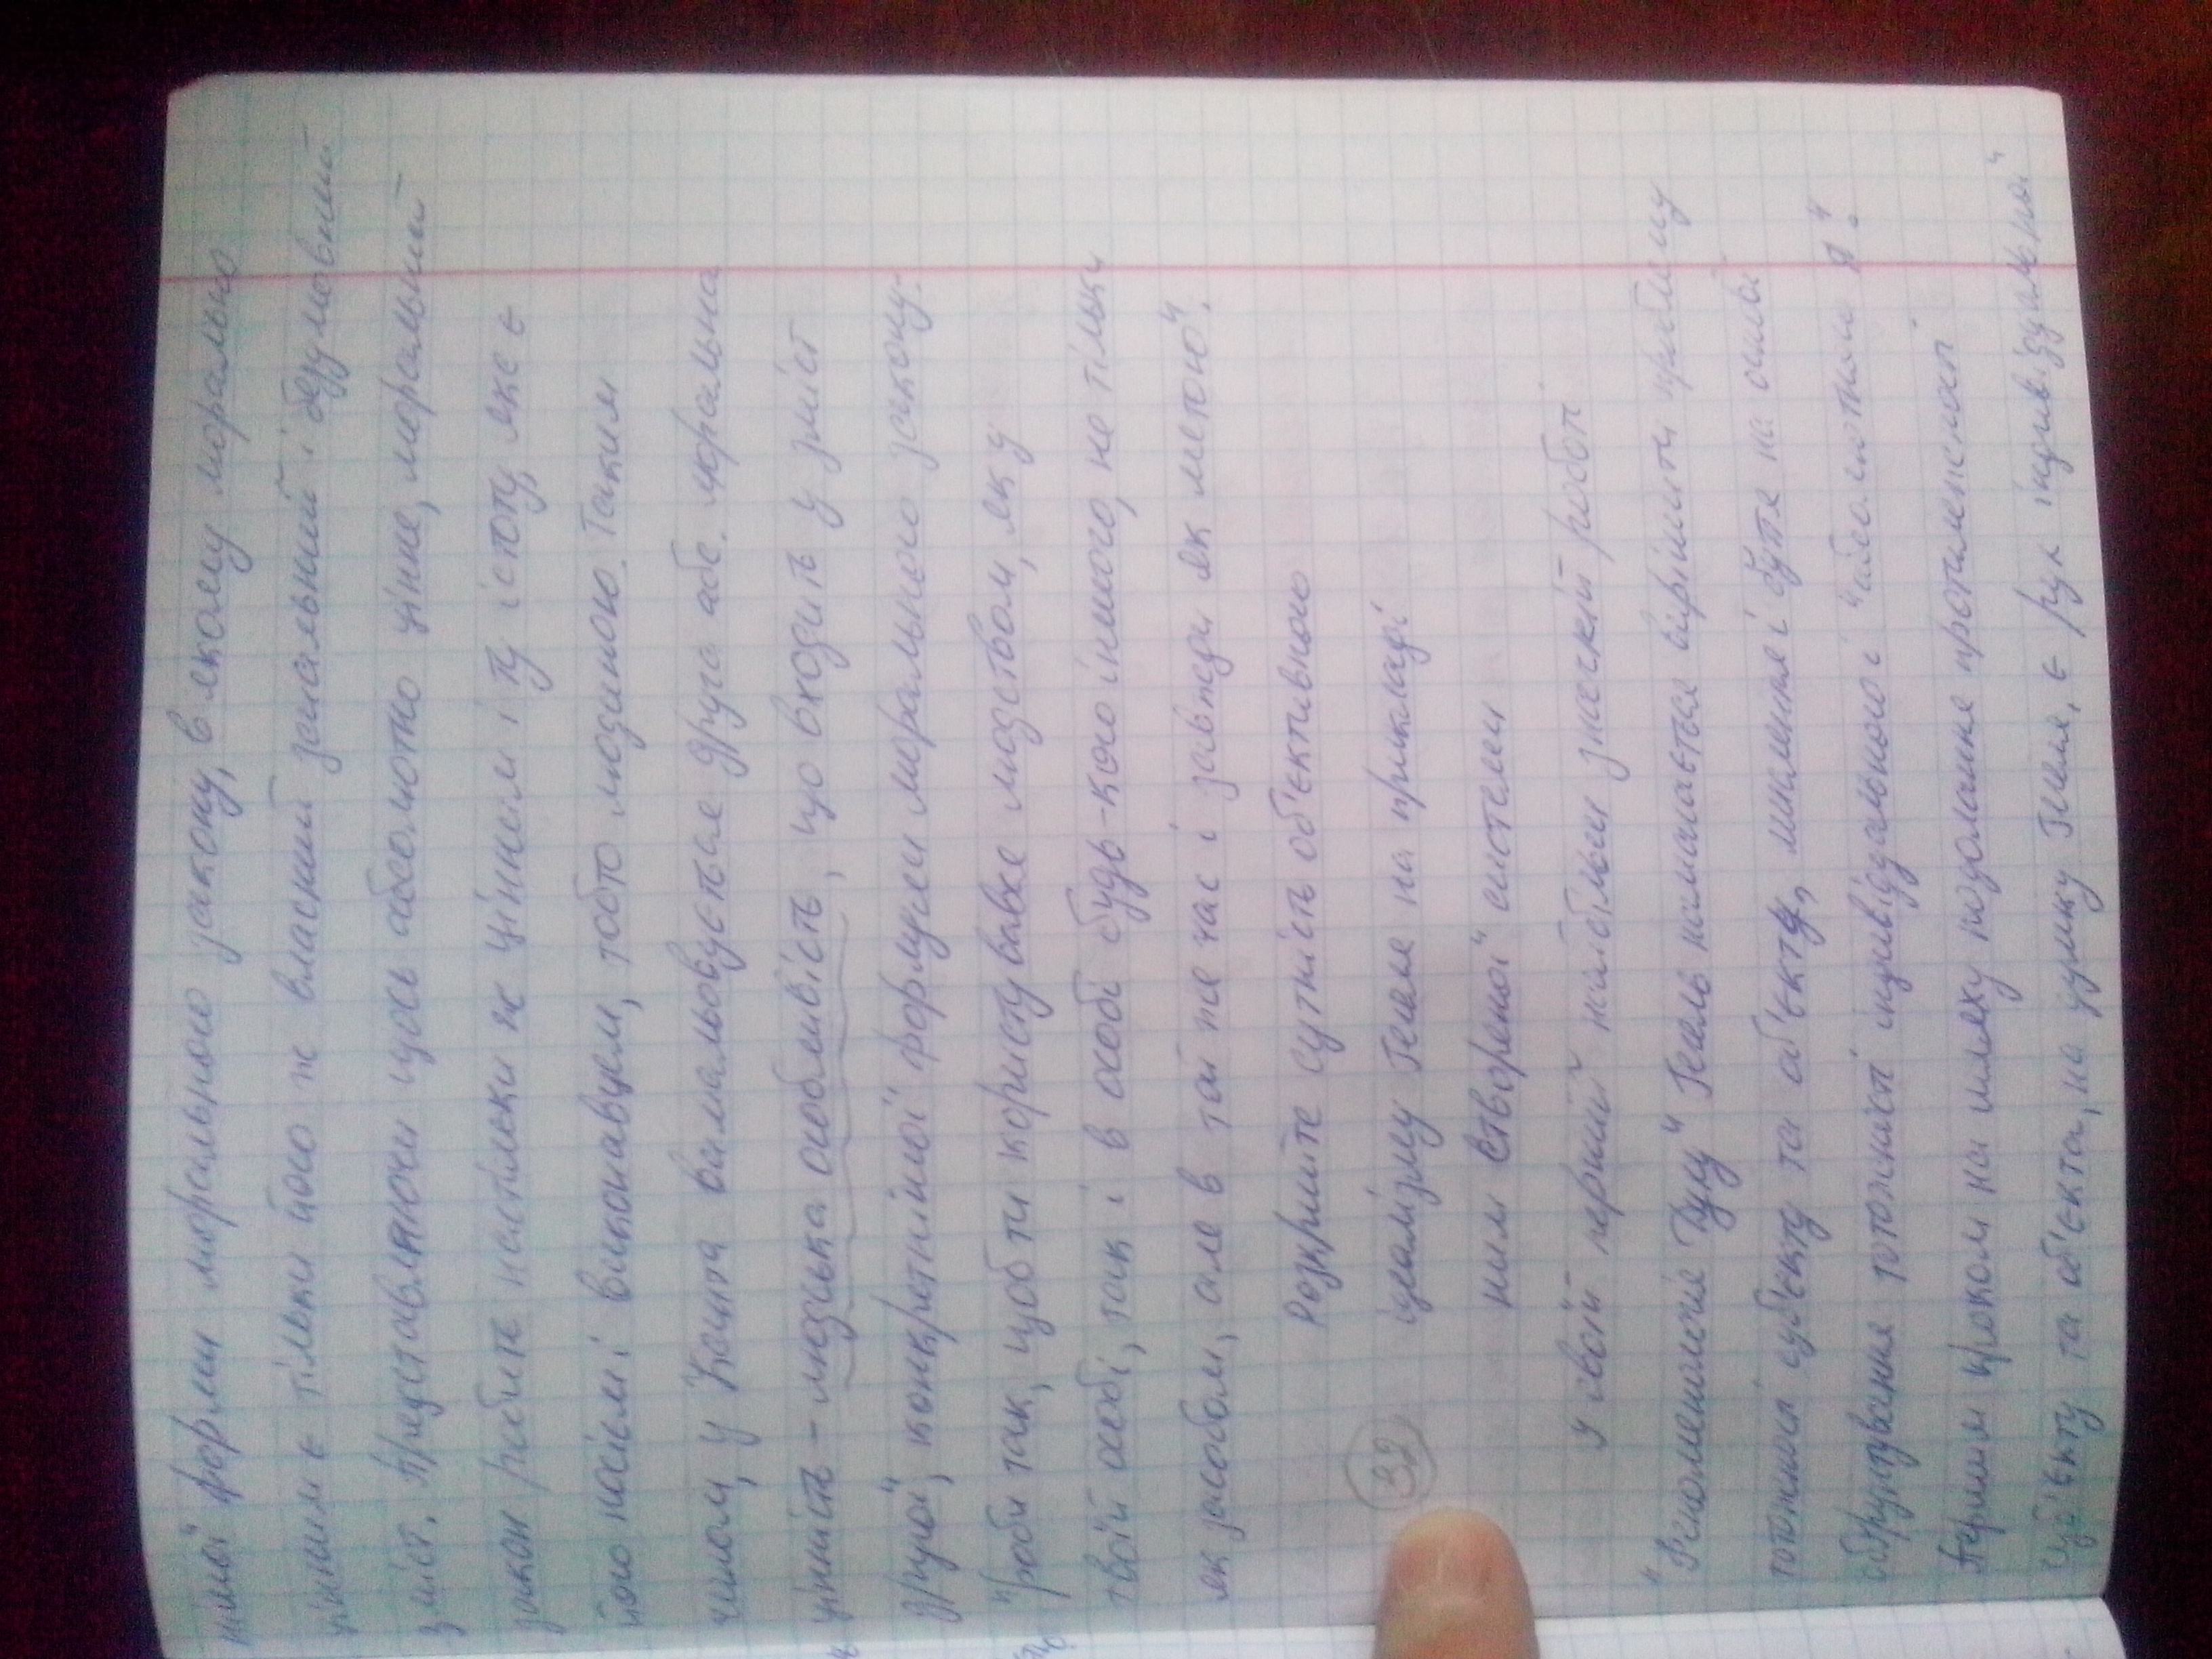 нішої форми морального закону, в якому морально
цінним є тільки його ж власний загальний і безумовний
зміст. Представляючи щось абсолютно цінне, моральний
закон робить настільки ж цінним і ту істоту, яка є
його носієм і виконавцем, тобто людиною. Таким
чином, у Канта вимальовується друга абс. моральна
цінність - людська особливість, що входить у зміст
другої, конкретнішої формули морального закону:
"роби так, щоб ти користувався людством, як у
твоїй особі, так і в особі будь-кого іншого, не тільки
як засобом, але в той же час і завжди як метою".
Розкрийте сутність об'єктивного
32 ідеалізму Гегеля на прикладі
ним створеної системи
У своїй першій найбільш значній роботі
"Феноменологія Духу" Гегель намагається вирішити проблему
тотожності суб'єкту та об'єкту, мислення і буття на основі
обґрунтування тотожності індивідуального і "абсолютного Я".
Першим кроком на шляху подолання протилежності
суб'єкту та об'єкта, на думку Гегеля, є рух індивідуальної